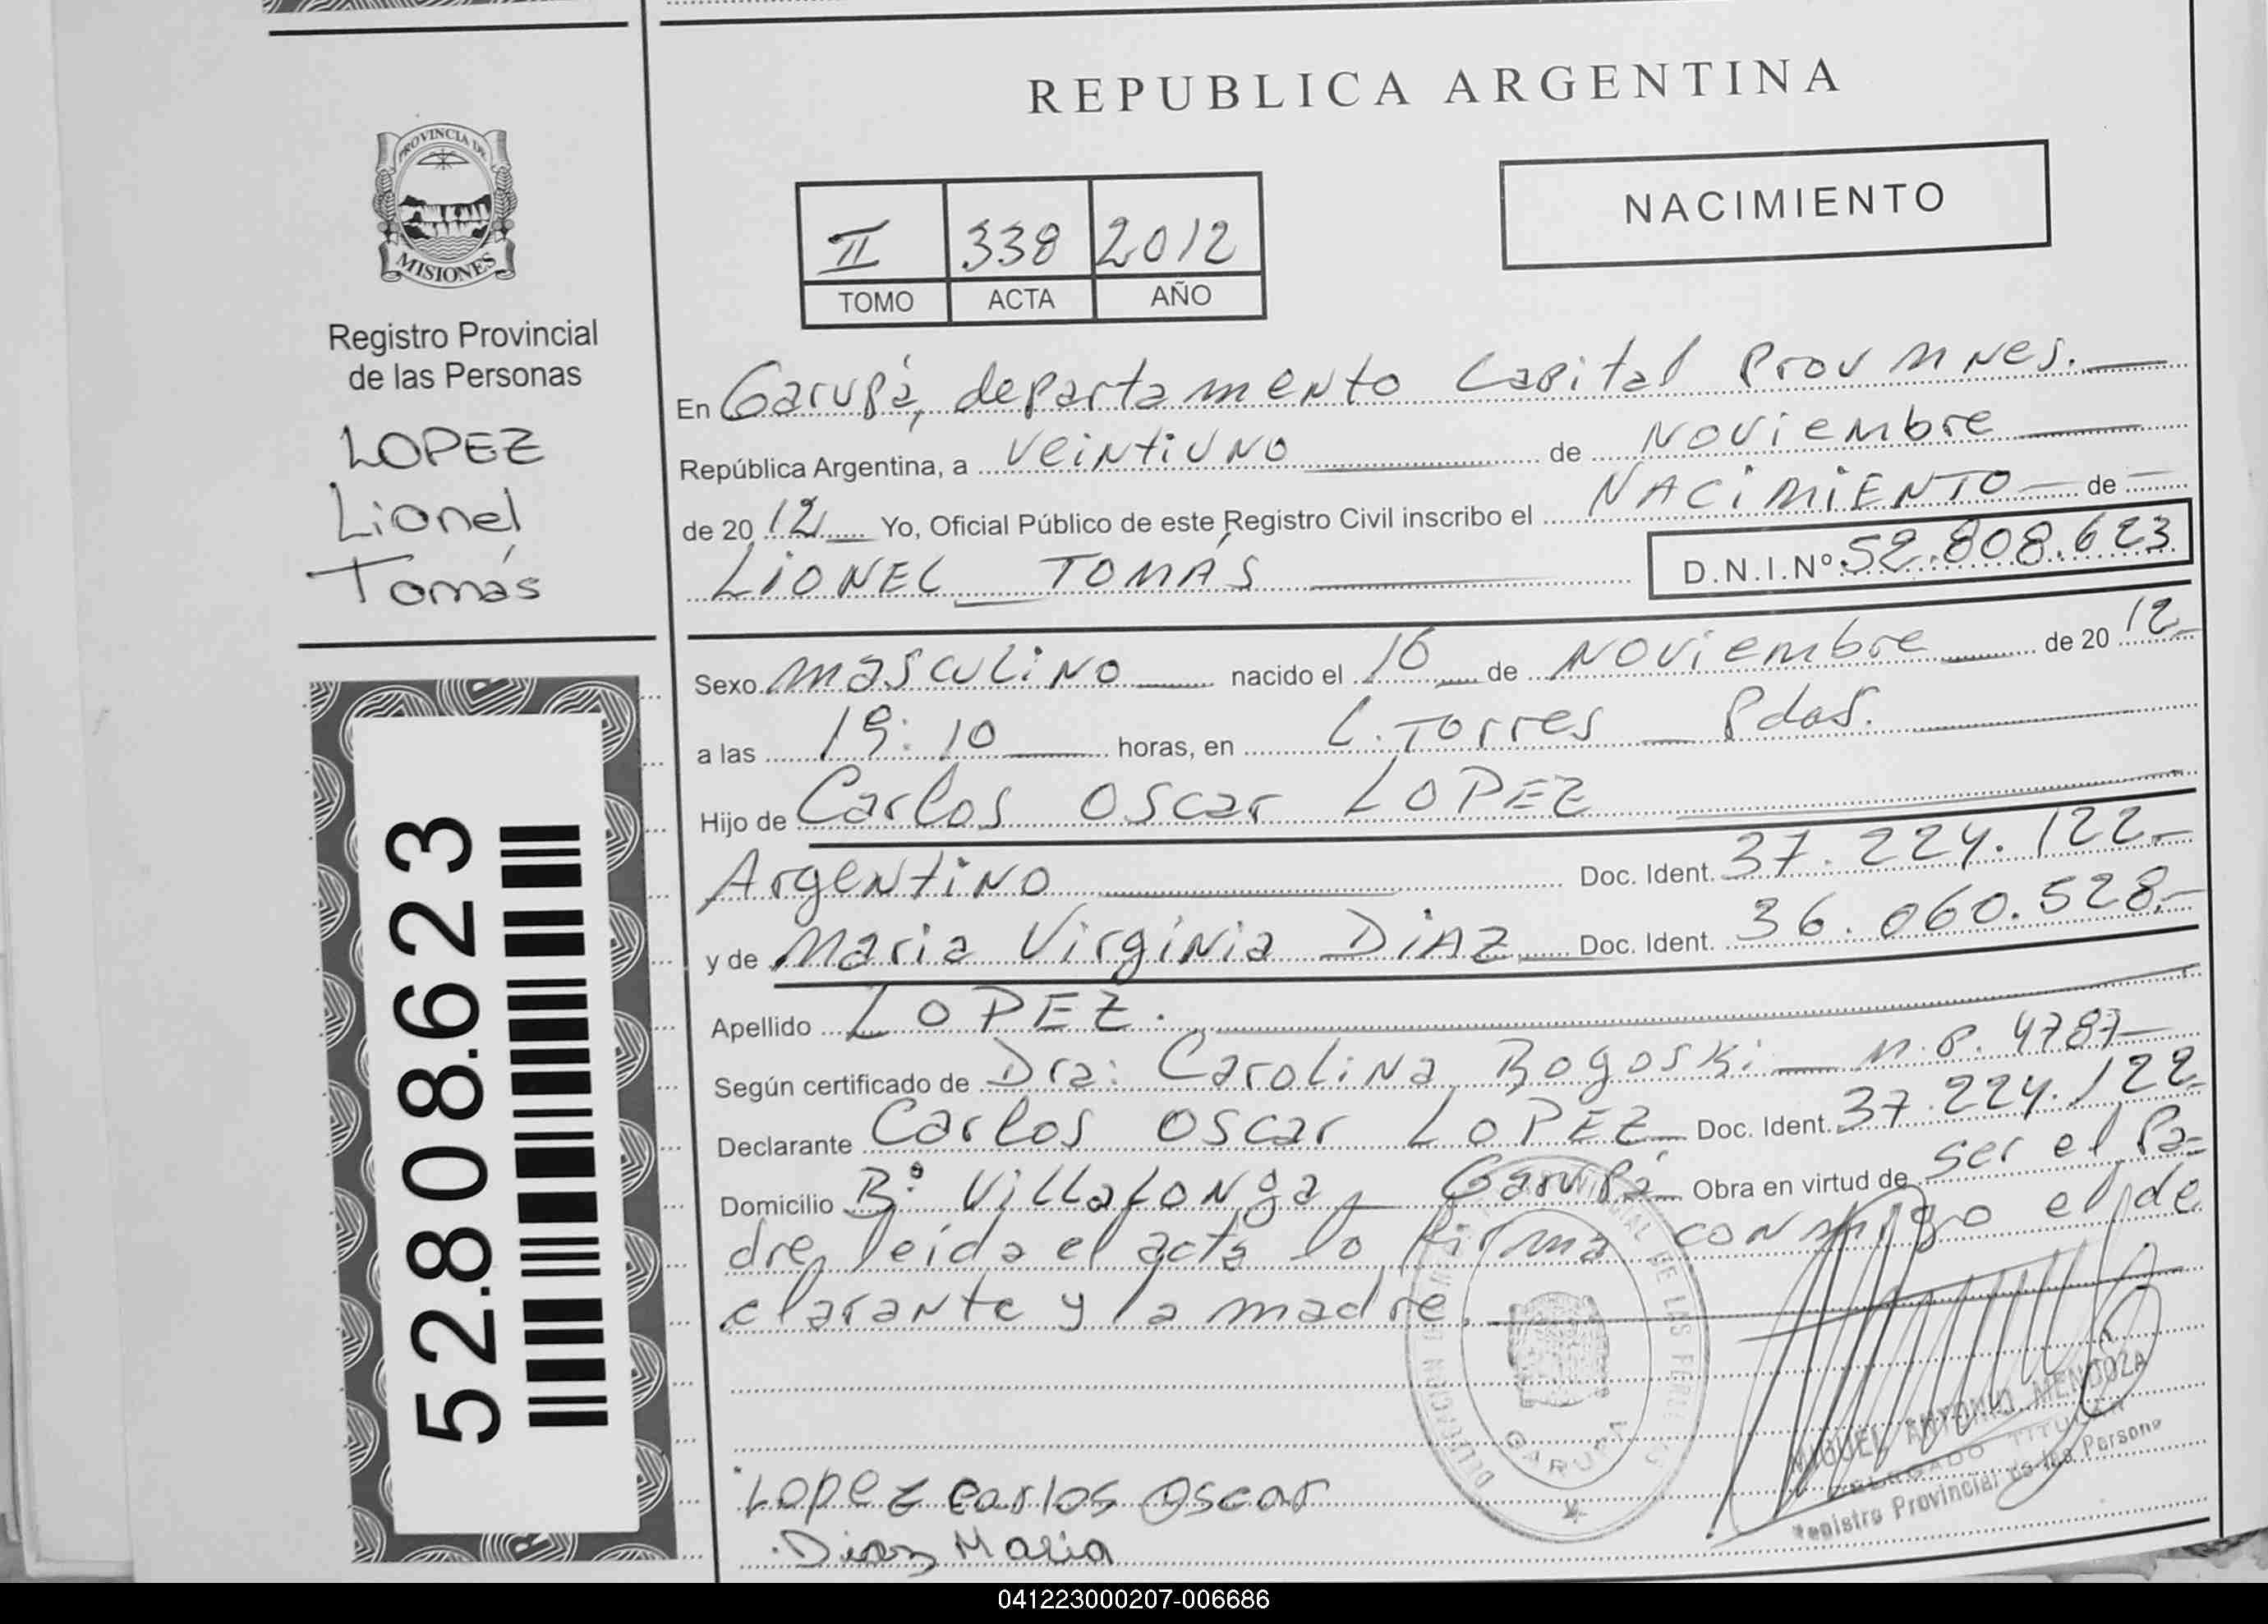 REPUBLICA ARGENTINA
PROVINCIA DE
MISIONES
Registro Provincial
de las Personas
LOPEZ
Lionel
Tomás
52.808.623
NACIMIENTO
II 338 2012
TOMO ACTA AÑO
En Garupá, departamento Capital Prov Mnes.
República Argentina, a veintiuno de Noviembre
de 2012 Yo, Oficial Público de este Registro Civil inscribo el NACIMIENTO de
LIONEL TOMÁS D.N.I.Nº 52.808.623
Sexo masculino nacido el 16 de Noviembre de 2012
a las 19:10 horas, en L. Torres Pdas.
Hijo de Carlos Oscar LOPEZ
Argentino Doc. Ident. 37.224.122.-
y de Maria Virginia DIAZ Doc. Ident. 36.060.528.-
Apellido LOPEZ.
Según certificado de Dra: Carolina Bogoski M.P. 4787
Declarante Carlos Oscar LOPEZ Doc. Ident. 37.224.122
Domicilio Bº Villalonga Garupá Obra en virtud de ser el Pa=
dre, leida el acta lo firma conmigo el de
clarante y la madre.
GARUPA
MIGUEL ANTONIO MENDOZA
DELEGADO TITULAR
Registro Provincial de las Personas
Lopez Carlos Oscar
Diaz Maria
041223000207-006686